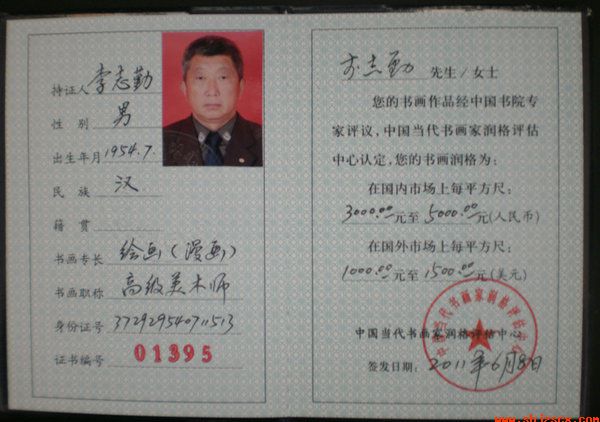 持证人 李志勤
性别 男
出生年月 1954.7.
民族 汉
籍贯
书画专长 绘画(漫画)
书画职称 高级美术师
身份证号 372929540711513
证书编号 01395
李志勤 先生/女士
您的书画作品经中国书院专
家评议,中国当代书画家润格评估
中心认定,您的书画润格为:
在国内市场上每平方尺:
3000.00元至5000.00元(人民币)
在国外市场上每平方尺:
1000.00元至1500.00元(美元)
中国当代书画家润格评估中心
中国当代书画家润格评估中心
签发日期: 2011年6月8日